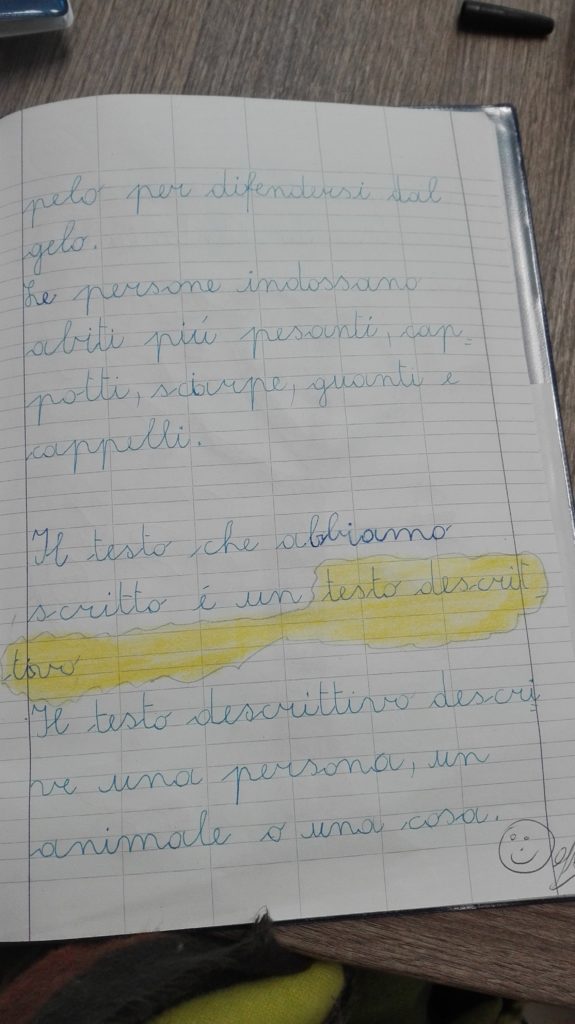 pelo per difendersi dal
gelo.
Le persone indossano
abiti piú pesanti, cap-
potti, sciarpe, guanti e
cappelli.
Il testo che abbiamo
scritto é un testo descrit-
tivo
Il testo descrittivo descri-
ve una persona, un
animale o una cosa.